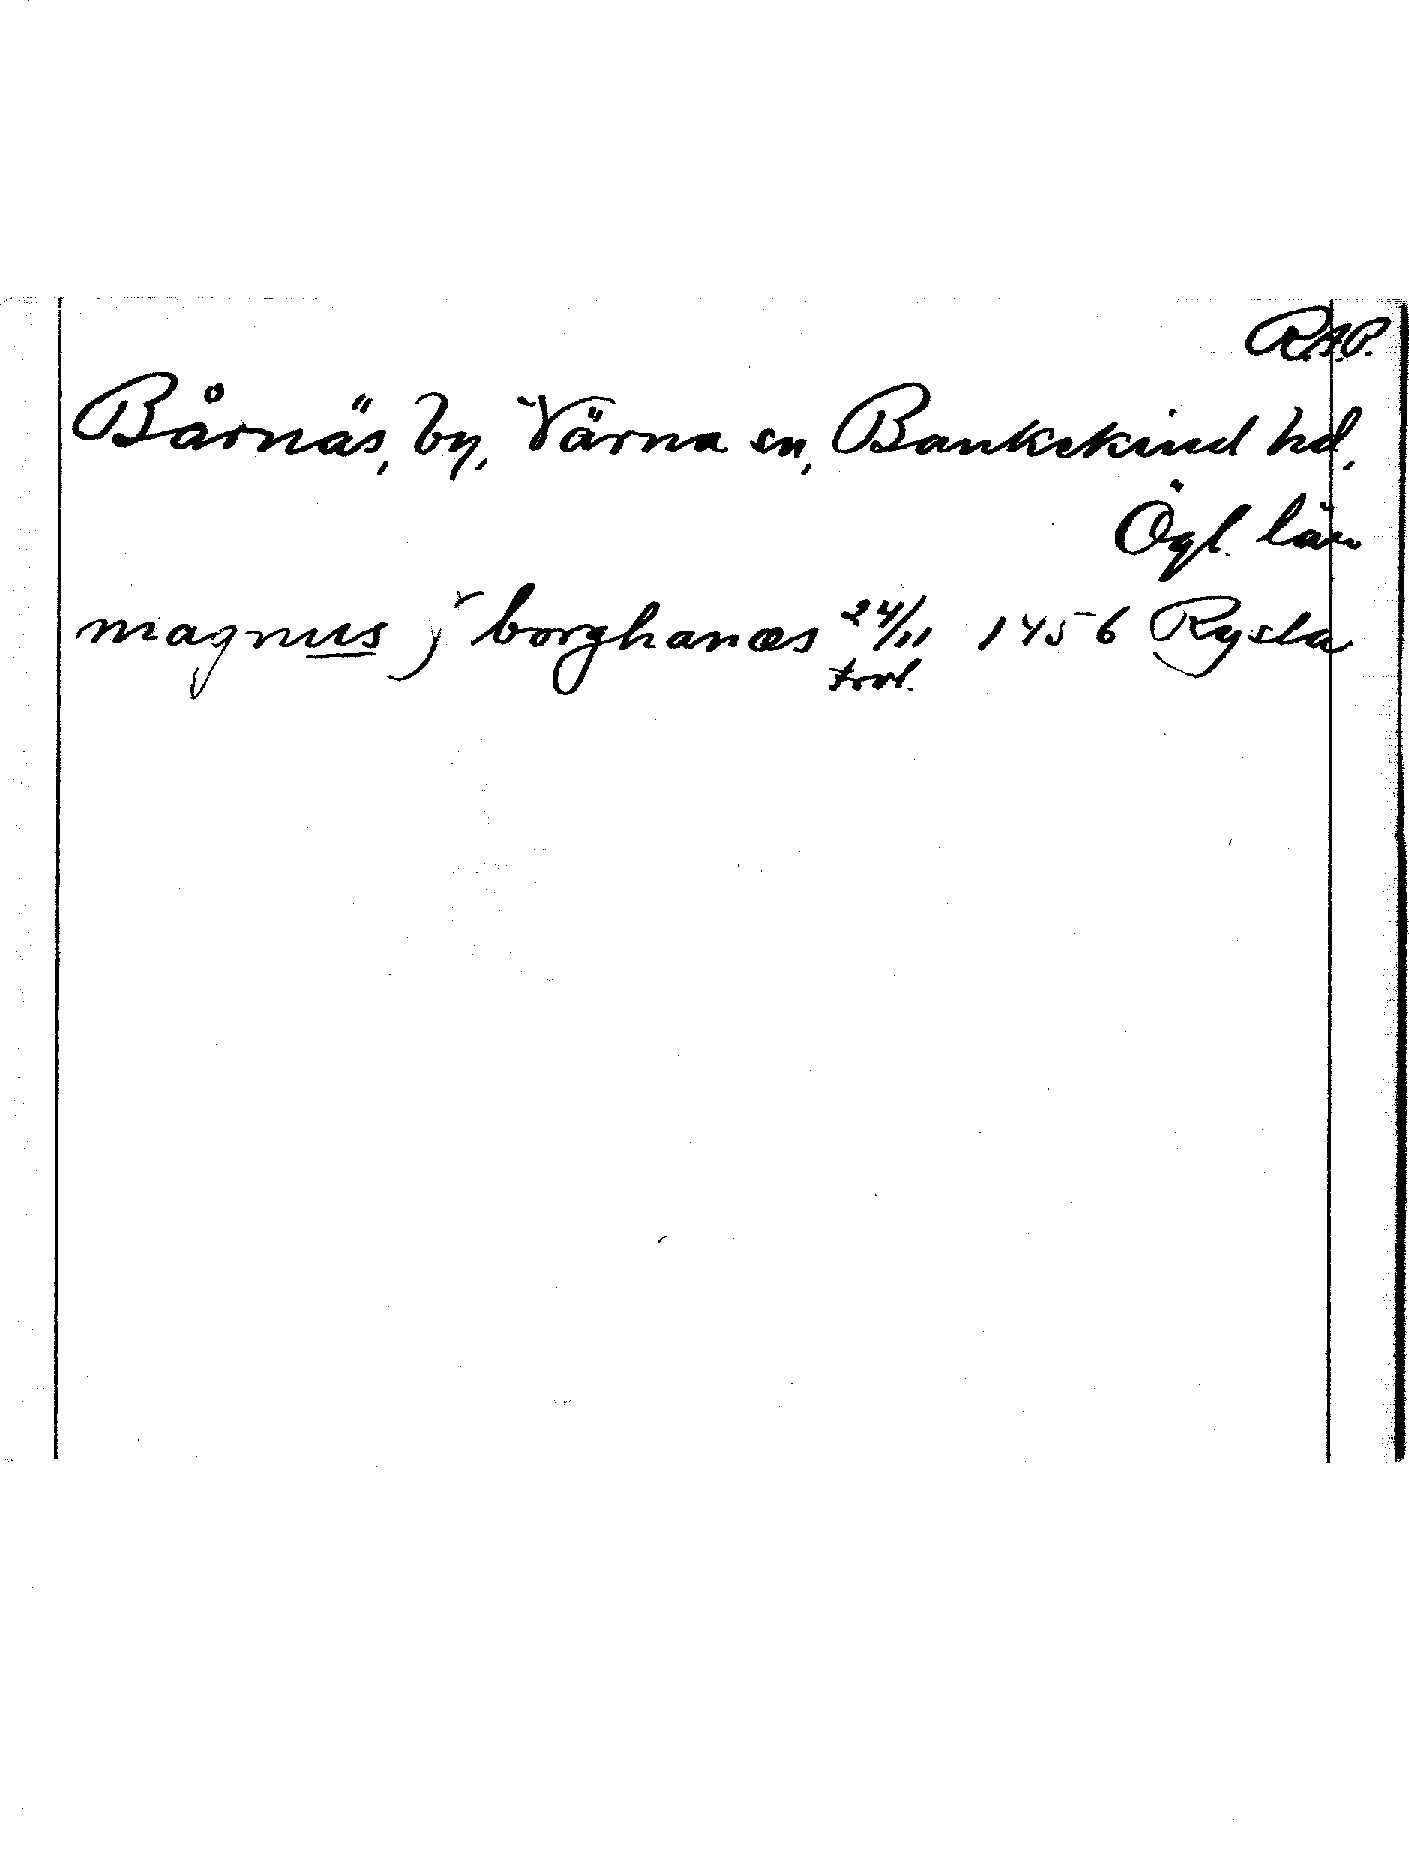 R.A.P.
Bårnäs, by, Värna sn, Bankekind hd,
Ögl. län
magnus j borghanæs 24/11 1456 Rysta
trol.